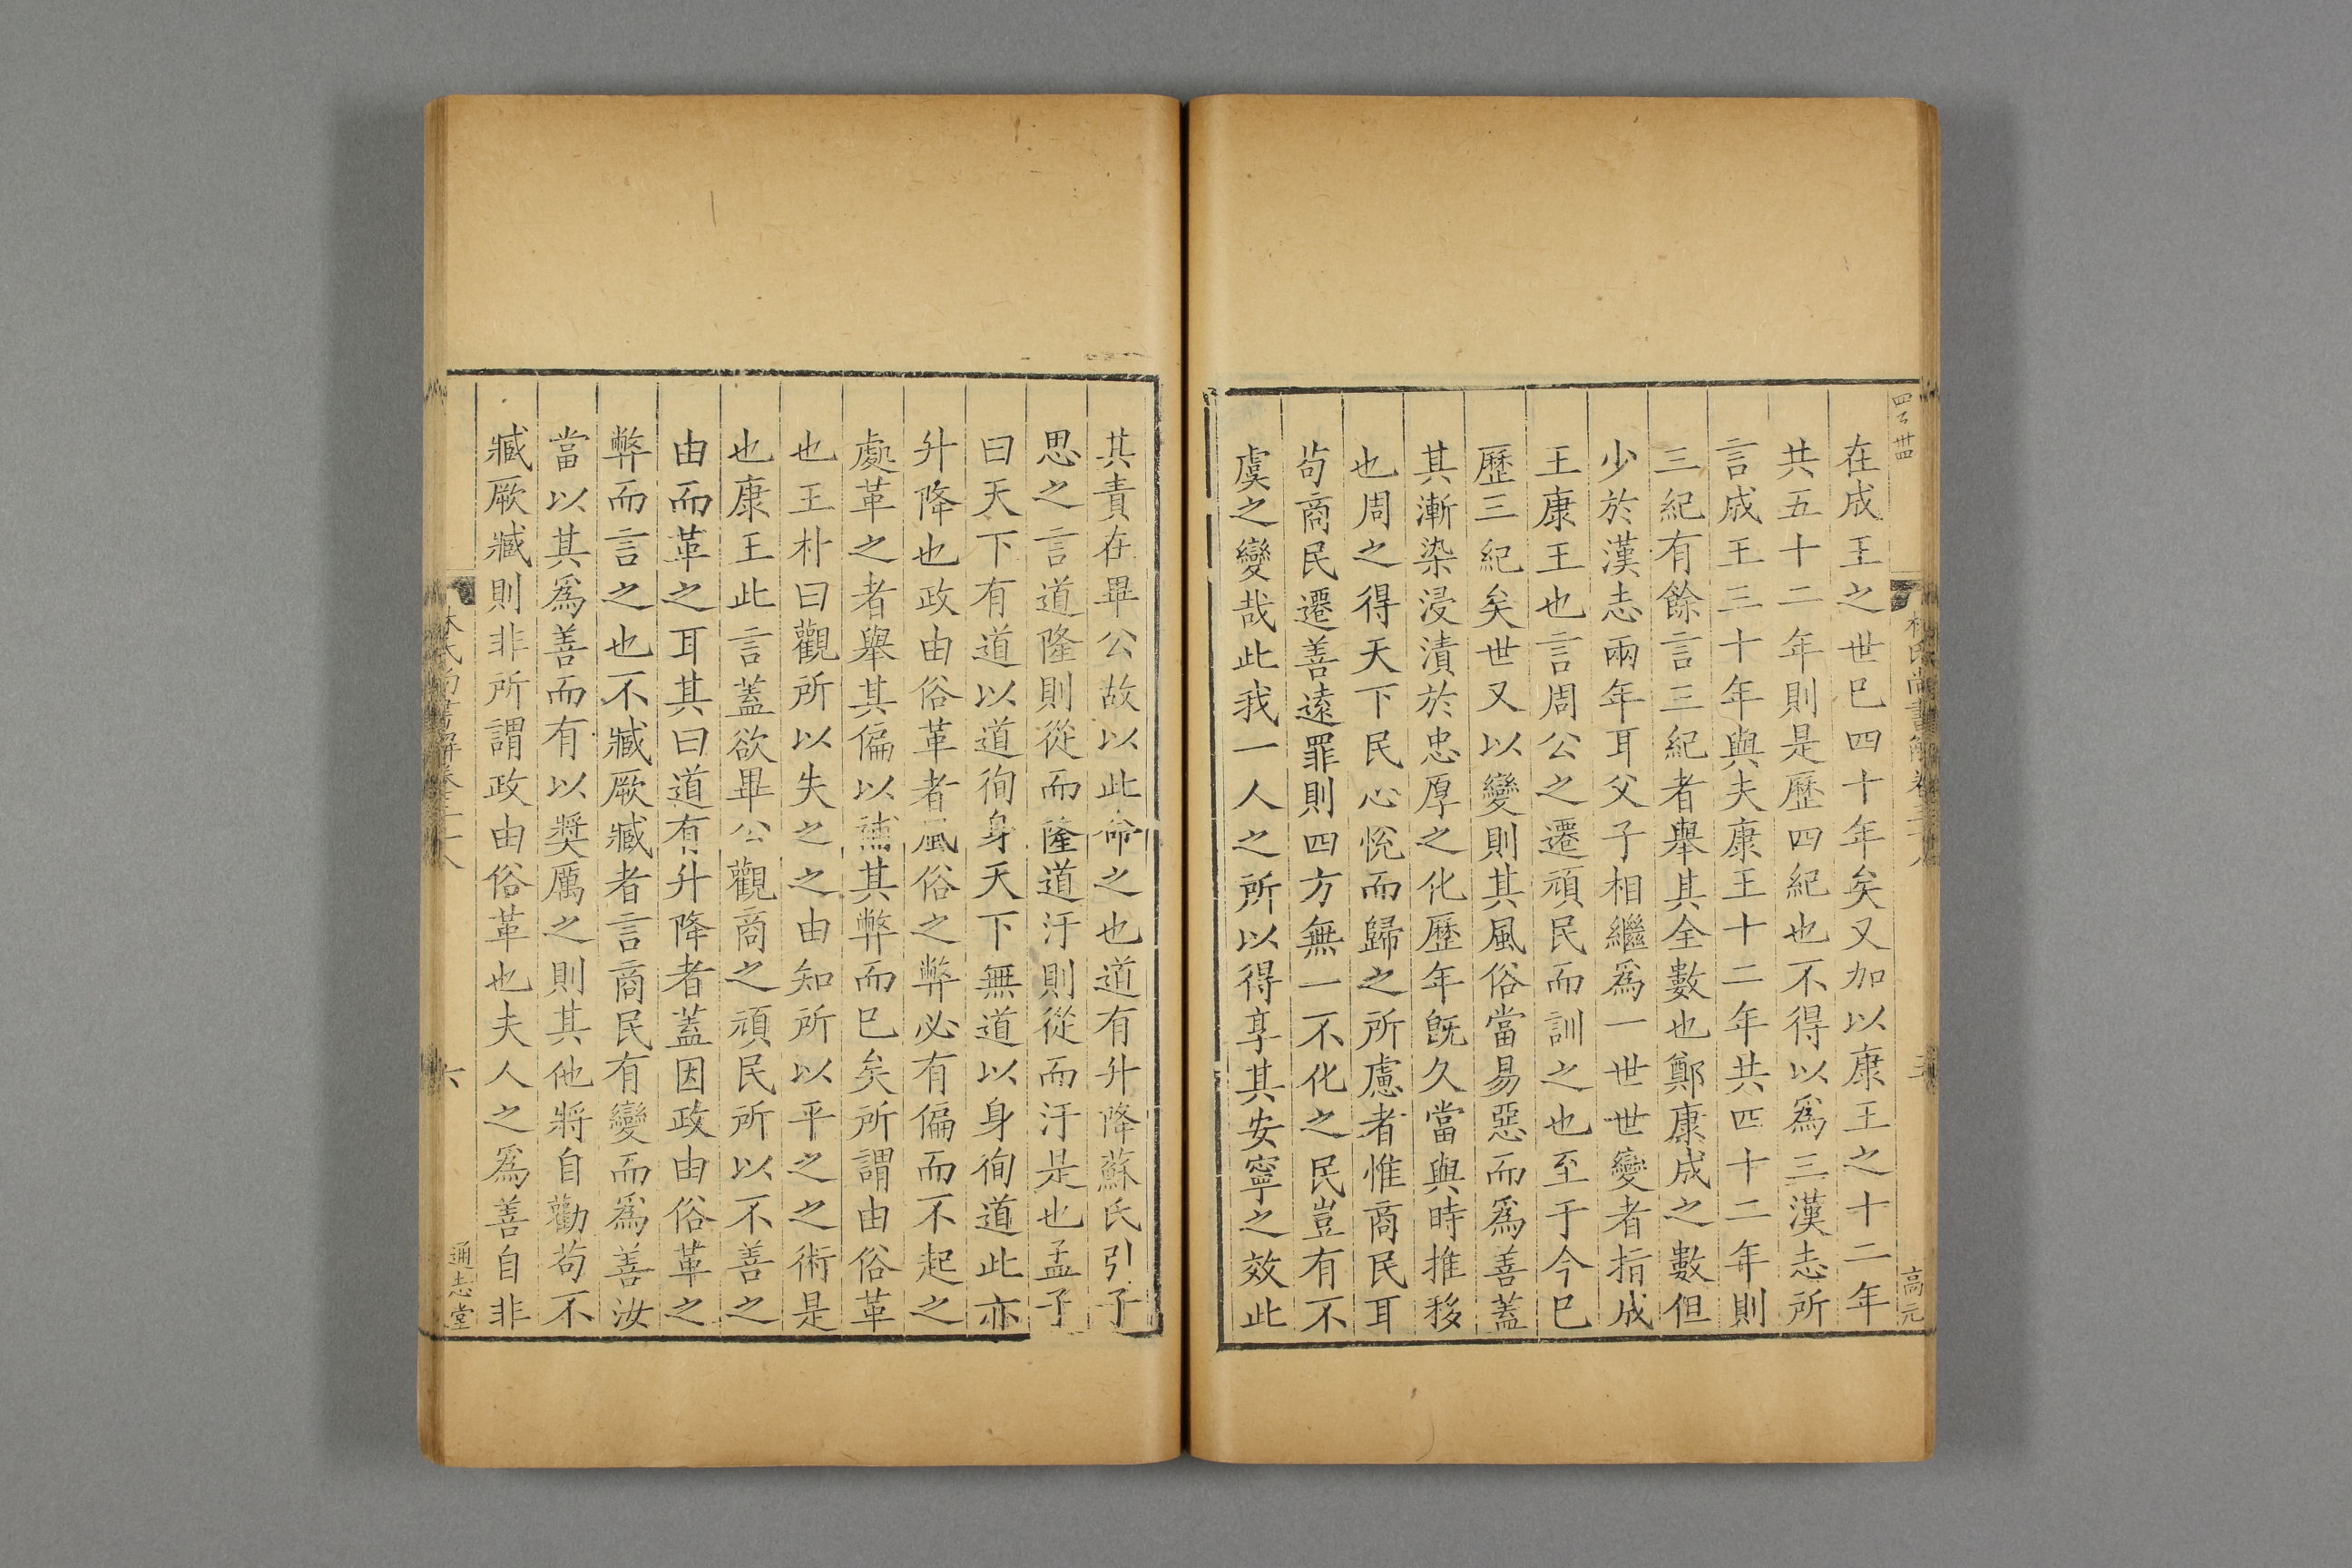 在成王之世已四十年矣又加以康王之十二年
共五十二年則是歷四紀也不得以爲三漢志所
言成王三十年與夫康王十二年共四十二年則
三紀有餘言三紀者舉其全數也鄭康成之數但
少於漢志兩年耳父子相繼爲一世世變者指成
王康王也言周公之遷頑民而訓之也至于今已
歷三紀矣世又以變則其風俗當易惡而爲善蓋
其漸染浸漬於忠厚之化歷年旣久當與時推移
也周之得天下民心悅而歸之所慮者惟商民耳
苟商民遷善遠罪則四方無一不化之民豈有不
虞之變哉此我一人之所以得享其安寧之效此
高元
其責在畢公故以此命之也道有升降蘇氏引子
思之言道隆則從而隆道汙則從而汙是也孟子
曰天下有道以道徇身天下無道以身徇道此亦
升降也政由俗革者風俗之弊必有偏而不起之
處革之者舉其偏以補其弊而已矣所謂由俗革
也王朴曰觀所以失之之由知所以平之之術是
也康王此言蓋欲畢公觀商之頑民所以不善之
由而革之耳其曰道有升降者蓋因政由俗革之
弊而言之也不臧厥臧者言商民有變而爲善汝
當以其爲善而有以奬厲之則其他將自勸苟不
臧厥臧則非所謂政由俗革也夫人之爲善自非
林氏尚書解卷三十八
六
通志堂